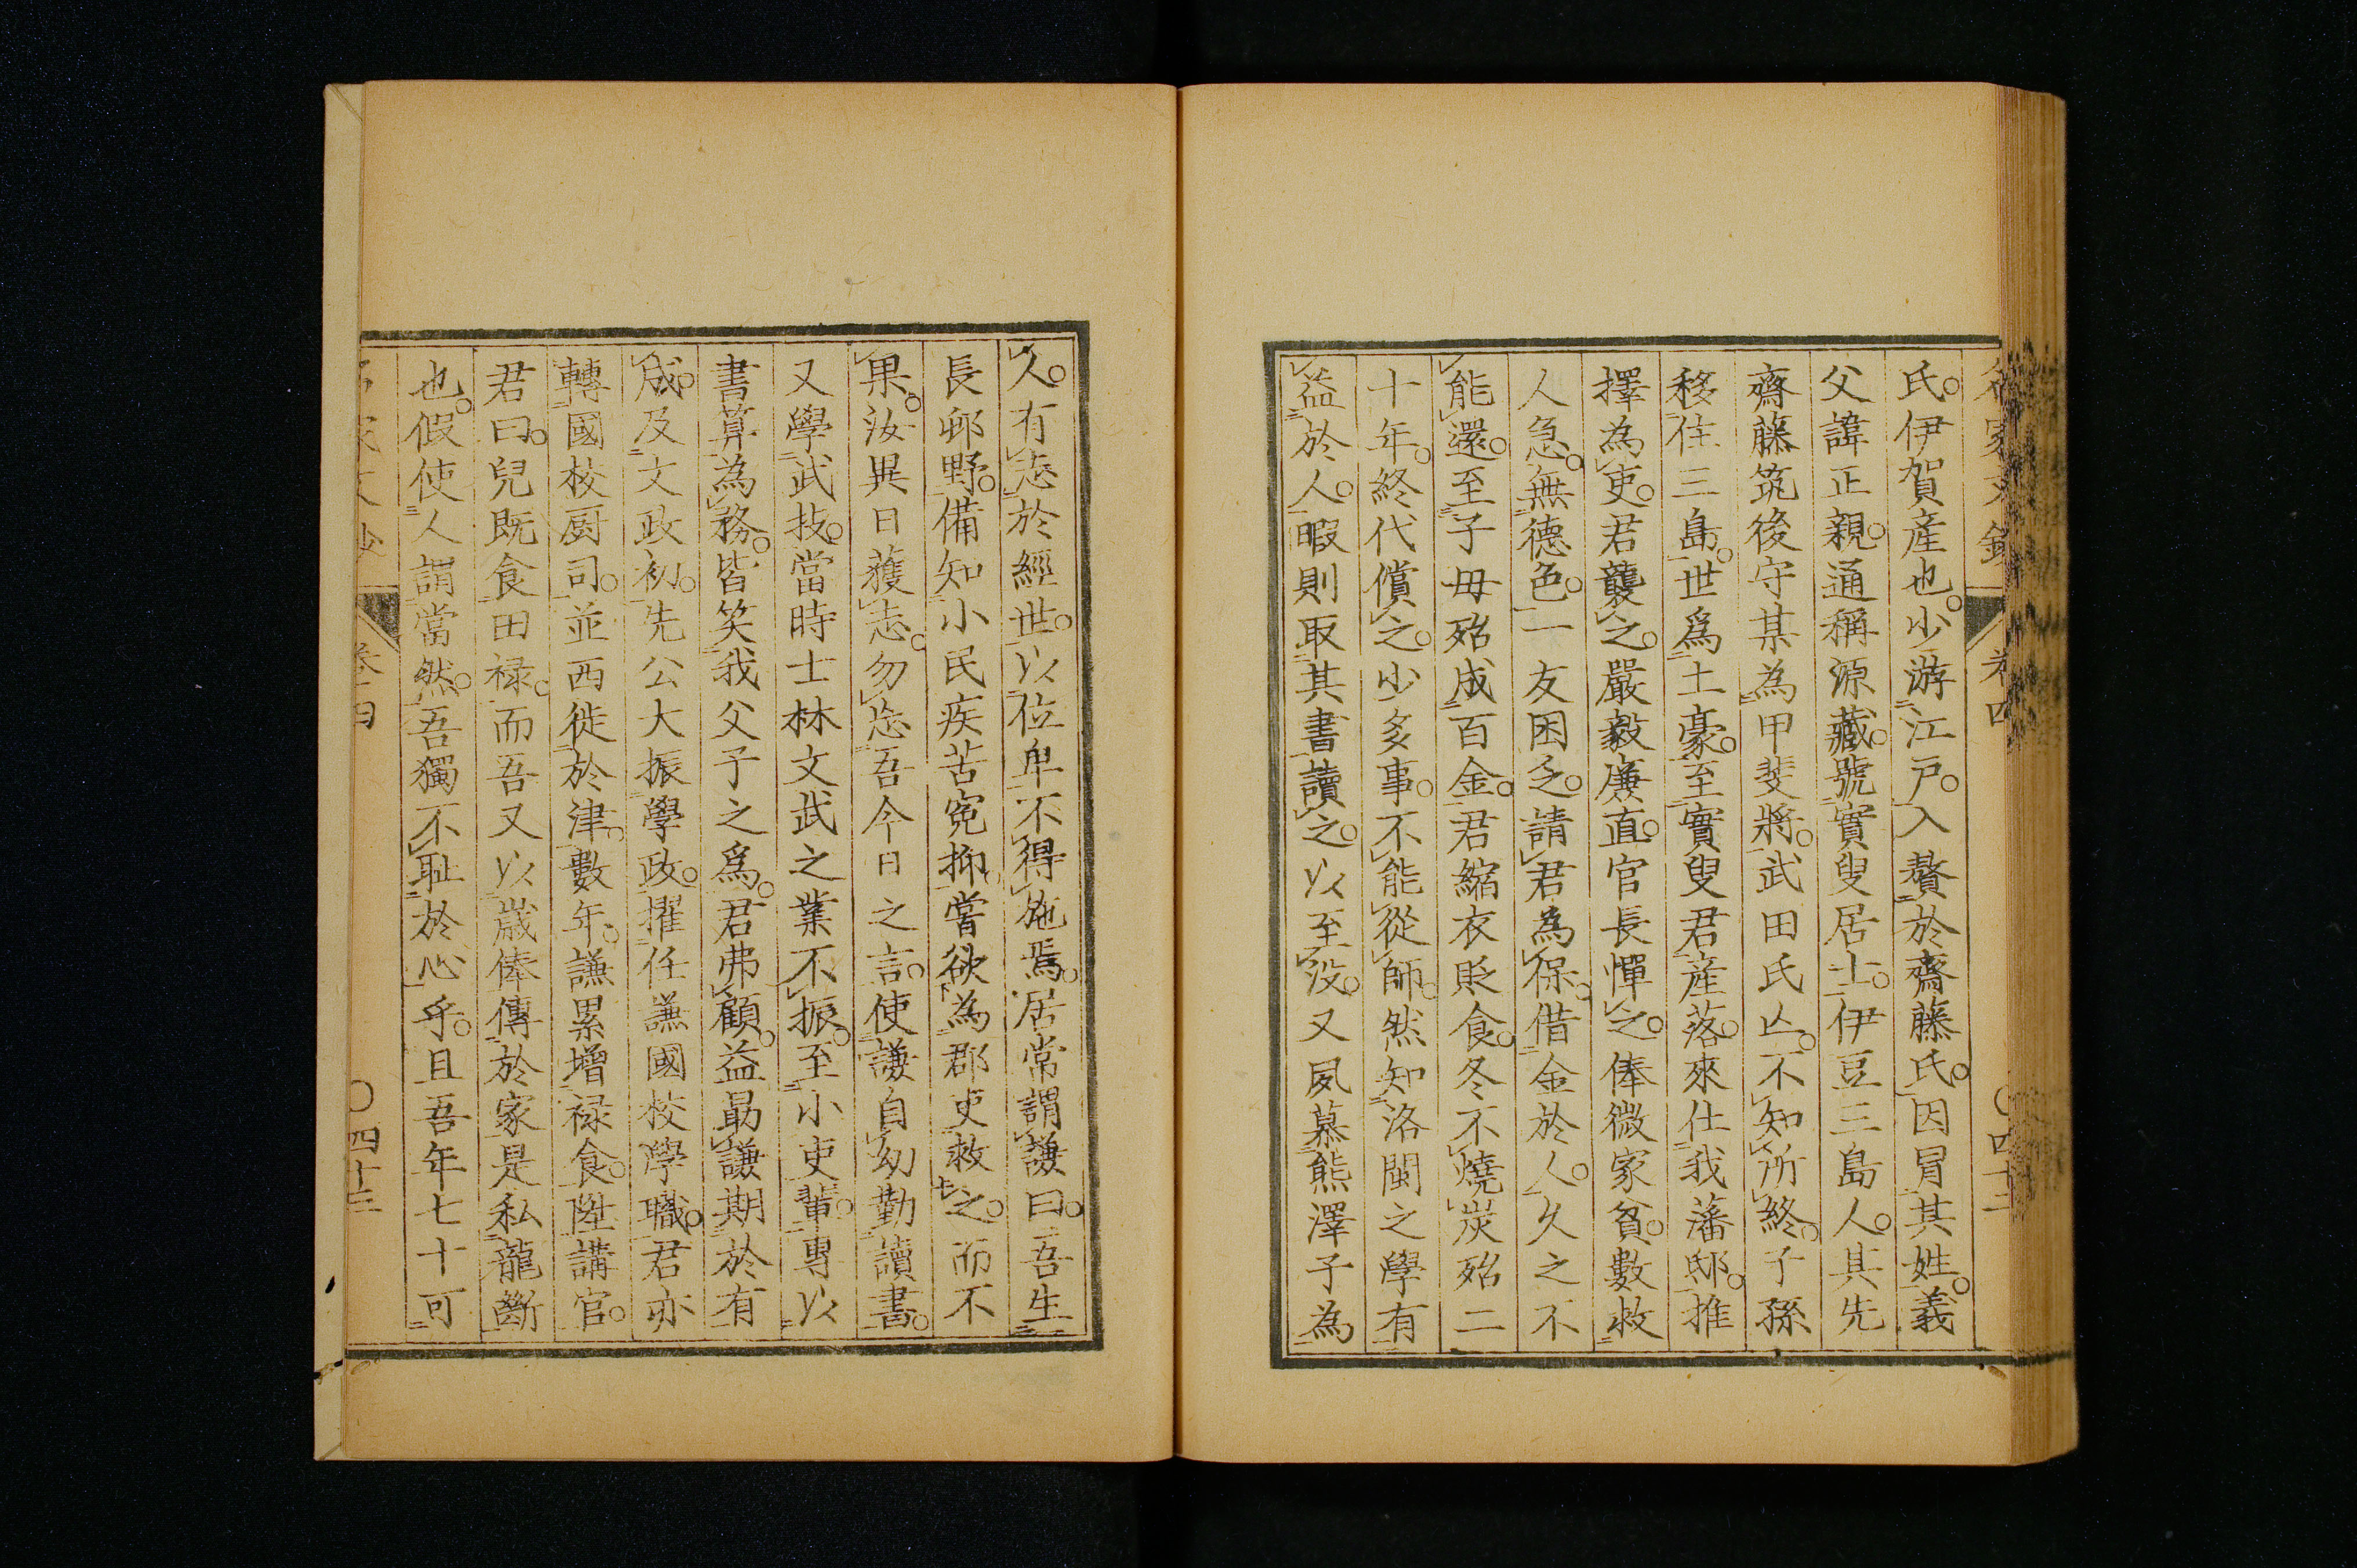 氏。伊賀産也。少游江戸。入贅於齋藤氏。因冒其姓。義
父諱正親。通稱源藏。號實叟居士。伊豆三島人。其先
齋藤筑後守某為甲斐將。武田氏亾。不知所終。子孫
移住三島。世爲土豪。至實叟君産落。來仕我藩邸。推
擇為吏。君襲之。嚴毅廉直。官長憚之。俸微家貧。數救
人急。無德色。一友困乏。請君為保。借金於人。久之不
能還。至子母殆成百金。君縮衣貶食。冬不燒炭殆二
十年。終代償之。少多事。不能從師。然知洛閩之學有
益於人。暇則取其書讀之。以至没。又夙慕熊澤子為
人。有志於經世。以位卑不得施焉。居常謂謙曰。吾生
長邨野。備知小民疾苦寃抑。嘗欲為郡吏救之。而不
果。汝異日獲志。勿忘吾今日之言。使謙自幼勤讀書。
又學武技。當時士林文武之業不振。至小吏輩。專以
書算為務。皆笑我父子之爲。君弗顧。益勗謙期於有
成。及文政初。先公大振學政。擢任謙國校學職。君亦
轉國校厨司。並西徙於津。數年。謙累增禄食。陞講官。
君曰。兒既食田禄。而吾又以歳俸傳於家是私龍斷
也。假使人謂當然。吾獨不耻於心乎。且吾年七十可
卷四